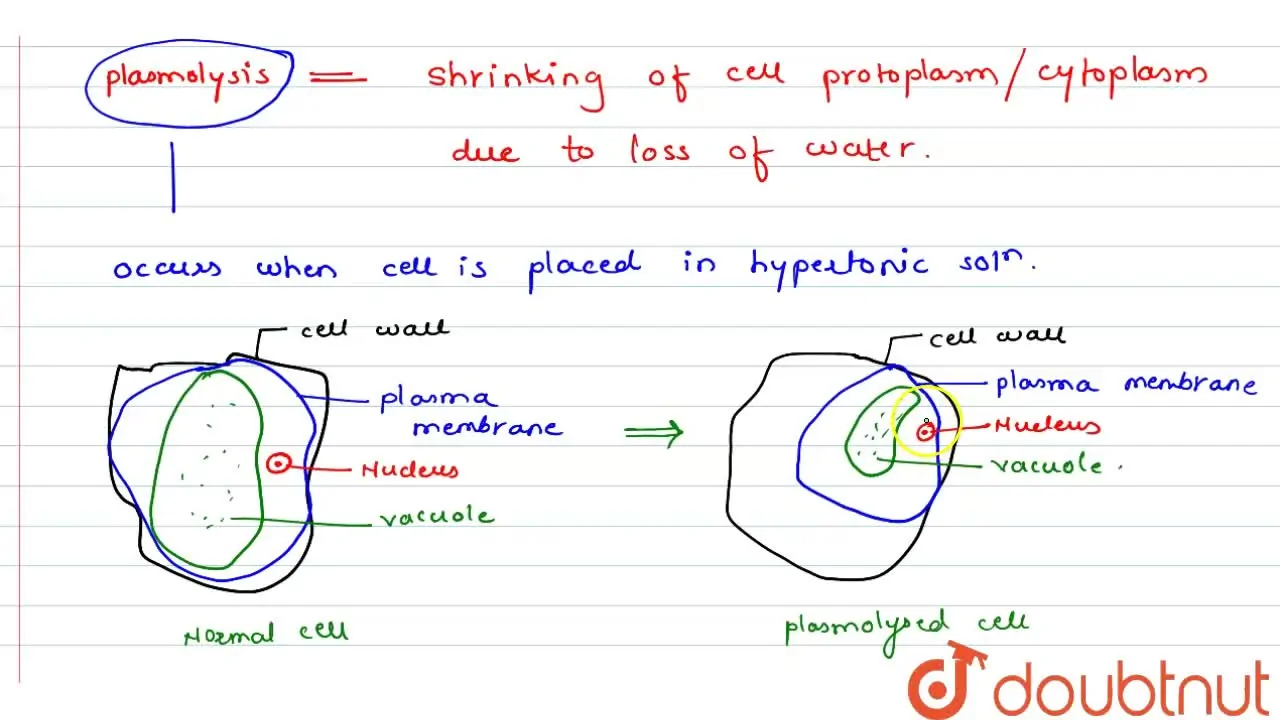 plasmolysis = shrinking of cell protoplasm/cytoplasm
due to loss of water.
occurs when cell is placed in hypertonic solⁿ.
cell wall
plasma
membrane
Nucleus
vacuole
Normal cell
cell wall
plasma membrane
Nucleus
vacuole
plasmolysed cell
doubtnut